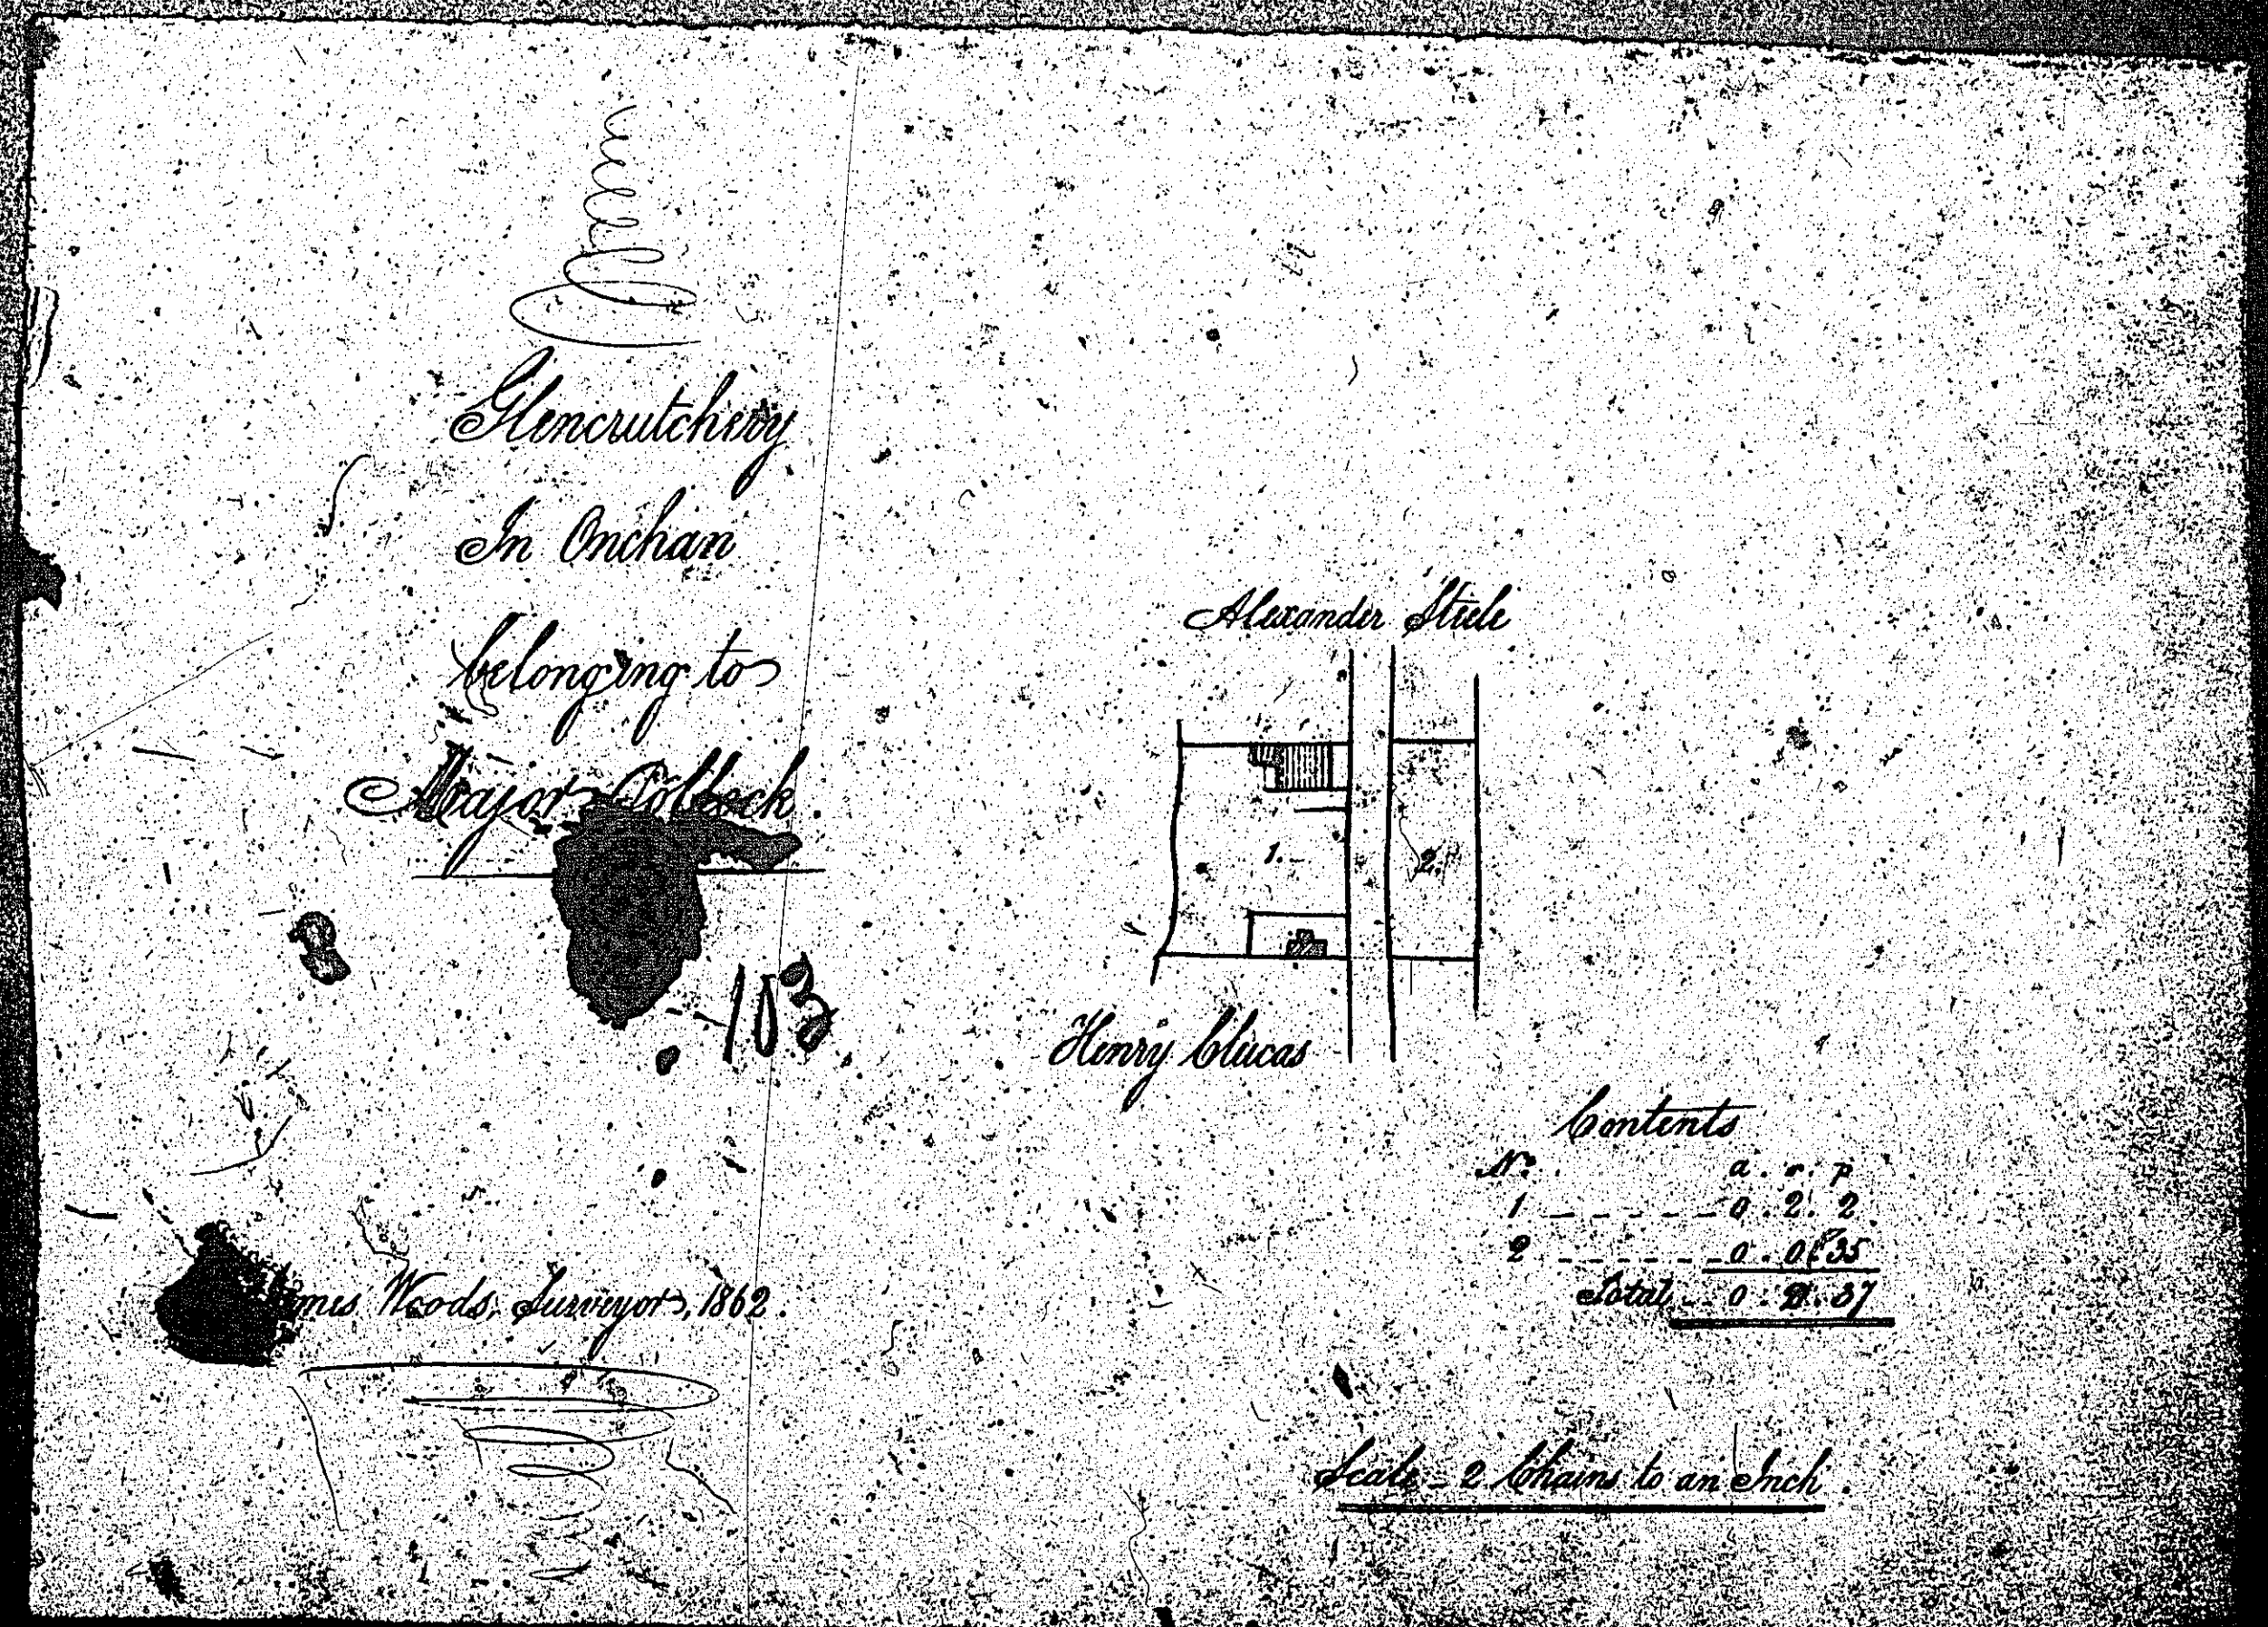 Glencrutchery
In Onchan
belonging to
Major
103
James Woods, Surveyor, 1862.
Alexander Steele
1.
2.
Henry Clucas
Contents
No. a. r. p
1 – – – – – 0. 2. 2
2 – – – – – 0. 0. 35
Total – – 0. 2. 37
Scale – 2 Chains to an Inch.